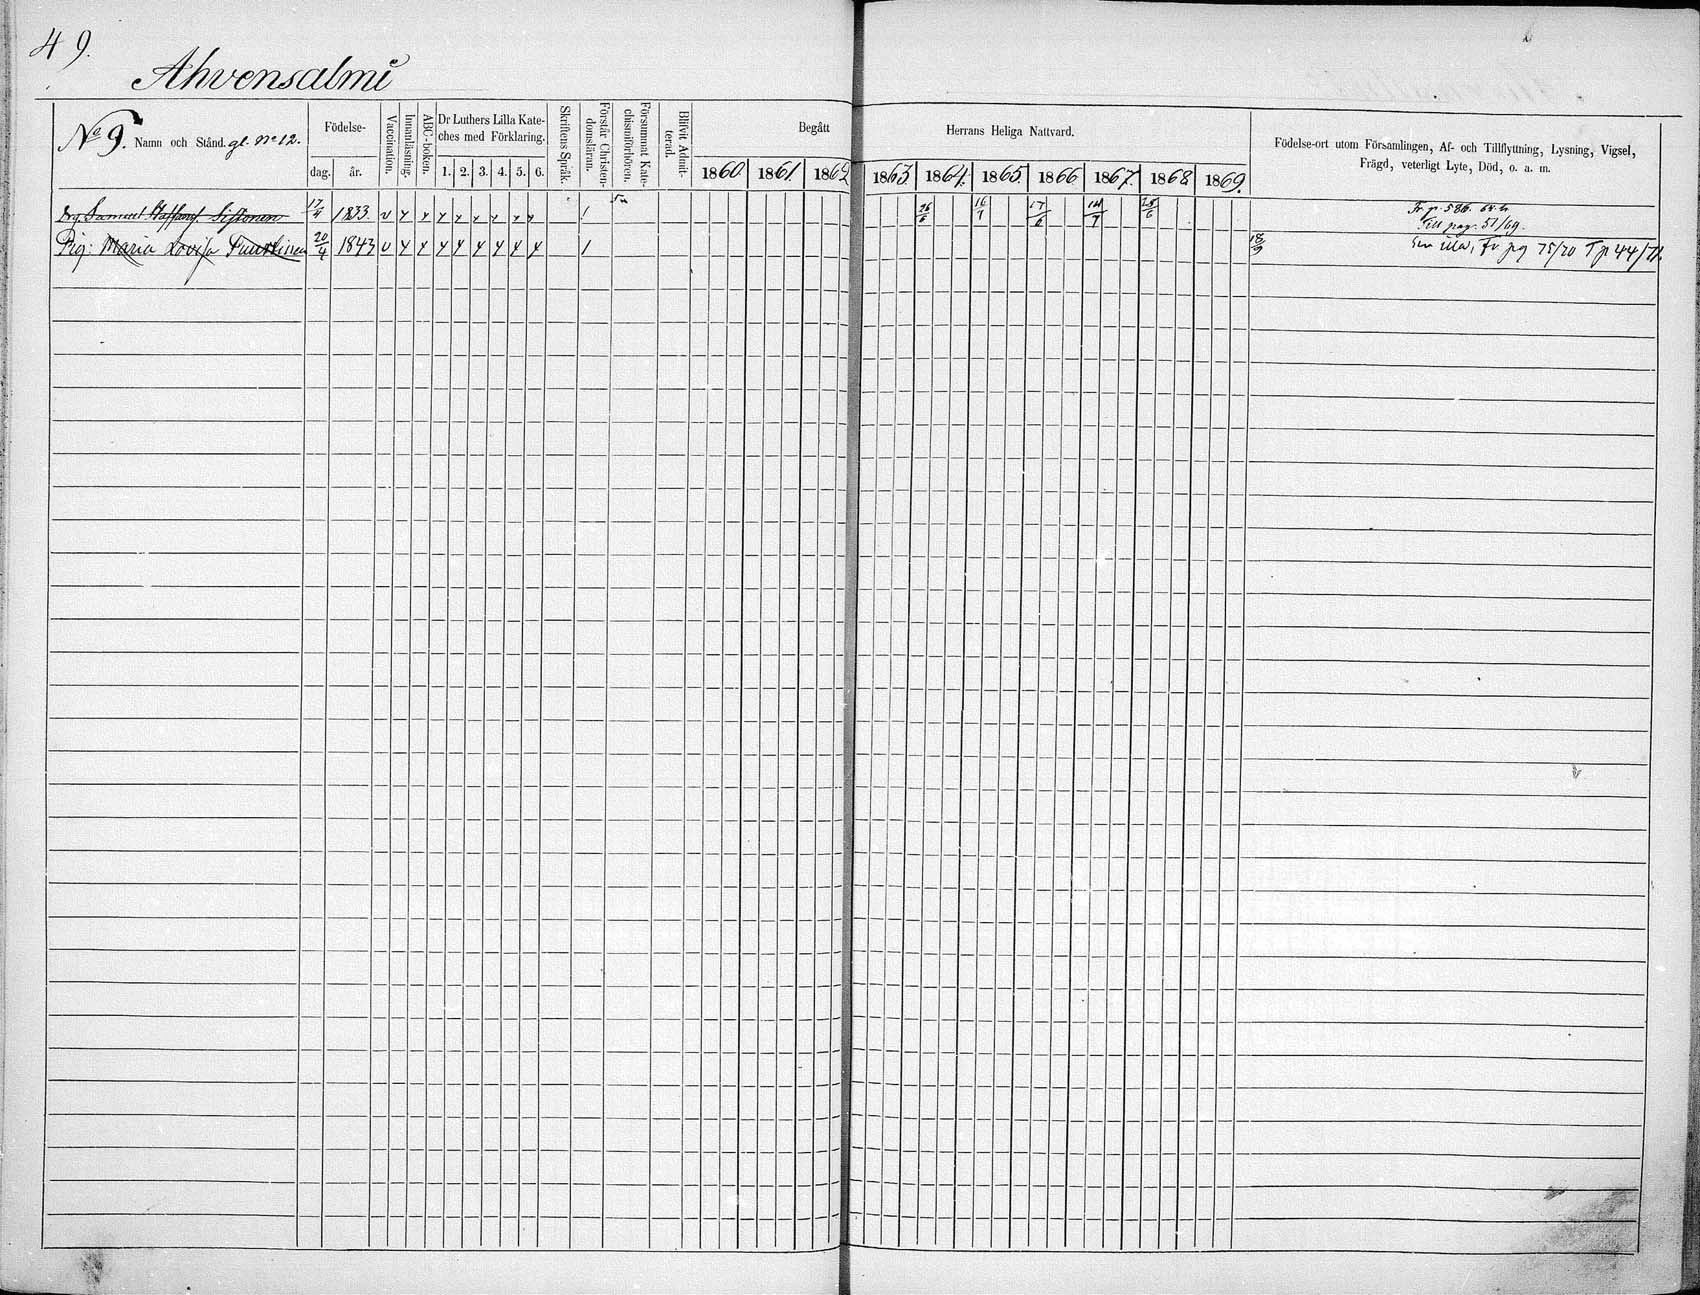 49.
Ahvensalmi
No 9. Namn och Stånd. gl. No 12.
Födelse-
dag. år.
Vaccination.
Innanläsning.
ABC-boken.
Dr Luthers Lilla Kate-
ches med Förklaring.
1. 2. 3. 4. 5. 6.
Skriftens Språk.
Förstår Christen-
domsläran.
Försummat Kate-
chismiförhören.
Blifvit Admit-
terad.
Begått Herrans Heliga Nattvard.
1860 1861 1862 1863. 1864. 1865. 1866 1867. 1868 1869.
Födelse-ort utom Församlingen, Af- och Tillflyttning, Lysning, Vigsel,
Frägd, veterligt Lyte, Död, o. a. m.
Drg Samuel Staffansf Sistonen 17/4 1833. v y y y y y y y y 1 26/6 16/7 17/6 14/7 28/6 Fr. p. 586.
Till pag. 51/69.
Pig: Maria Lovisa 20/4 1843 v y y y y y y y y 1 18/9 Fr pg 75/70 T p 44/71.